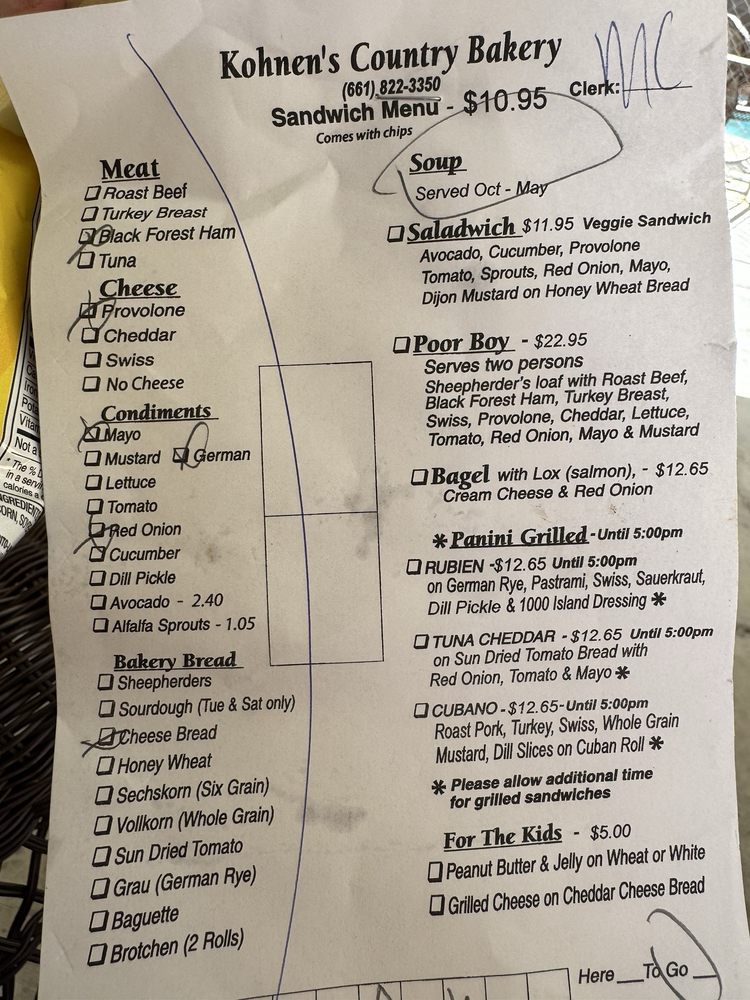 Kohnen's Country Bakery
(661) 822-3350
Clerk: MC
Sandwich Menu - $10.95
Comes with chips
Meat
Roast Beef
Turkey Breast
Black Forest Ham
Tuna
Cheese
Provolone
Cheddar
Swiss
No Cheese
Condiments
Mayo
Mustard German
Lettuce
Tomato
Red Onion
Cucumber
Dill Pickle
Avocado - 2.40
Alfalfa Sprouts - 1.05
Bakery Bread
Sheepherders
Sourdough (Tue & Sat only)
Cheese Bread
Honey Wheat
Sechskorn (Six Grain)
Vollkorn (Whole Grain)
Sun Dried Tomato
Grau (German Rye)
Baguette
Brotchen (2 Rolls)
Soup
Served Oct - May
Saladwich $11.95 Veggie Sandwich
Avocado, Cucumber, Provolone
Tomato, Sprouts, Red Onion, Mayo,
Dijon Mustard on Honey Wheat Bread
Poor Boy - $22.95
Serves two persons
Sheepherder's loaf with Roast Beef,
Black Forest Ham, Turkey Breast,
Swiss, Provolone, Cheddar, Lettuce,
Tomato, Red Onion, Mayo & Mustard
Bagel with Lox (salmon), - $12.65
Cream Cheese & Red Onion
* Panini Grilled - Until 5:00pm
RUBIEN -$12.65 Until 5:00pm
on German Rye, Pastrami, Swiss, Sauerkraut,
Dill Pickle & 1000 Island Dressing *
TUNA CHEDDAR - $12.65 Until 5:00pm
on Sun Dried Tomato Bread with
Red Onion, Tomato & Mayo *
CUBANO - $12.65- Until 5:00pm
Roast Pork, Turkey, Swiss, Whole Grain
Mustard, Dill Slices on Cuban Roll *
* Please allow additional time
for grilled sandwiches
For The Kids - $5.00
Peanut Butter & Jelly on Wheat or White
Grilled Cheese on Cheddar Cheese Bread
Here __ To Go __
Not a
* The %
in a serv
calories a